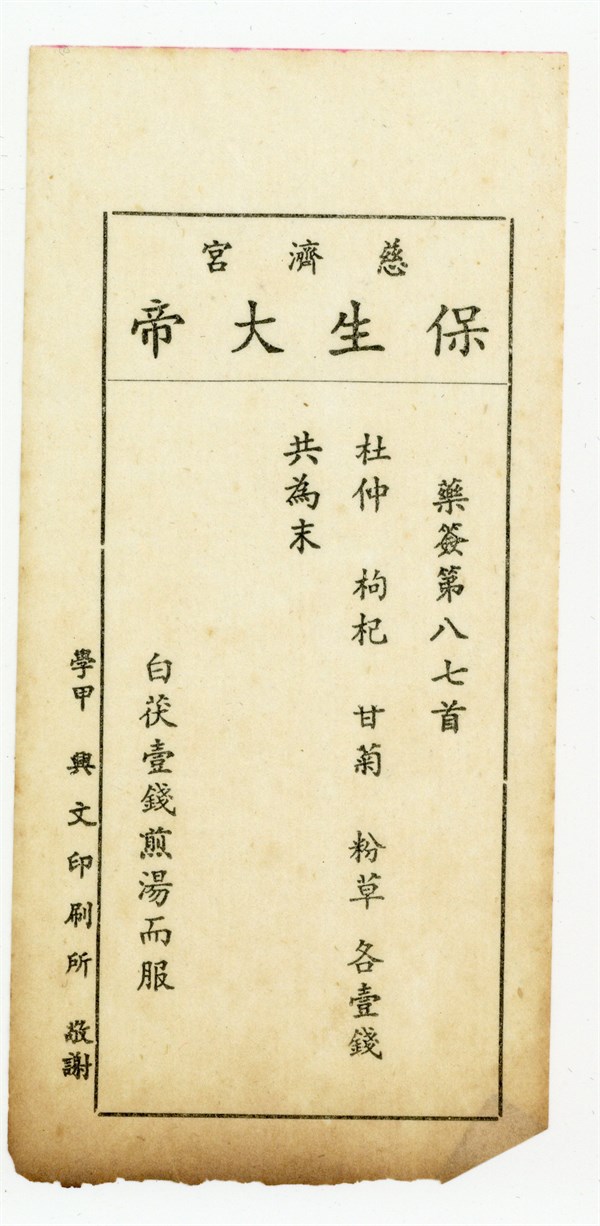 慈濟宮
保生大帝
藥簽第八七首
杜仲 枸杞 甘菊 粉草 各壹錢
共為末
白茯壹錢煎湯而服
學甲 興文印刷所 敬謝